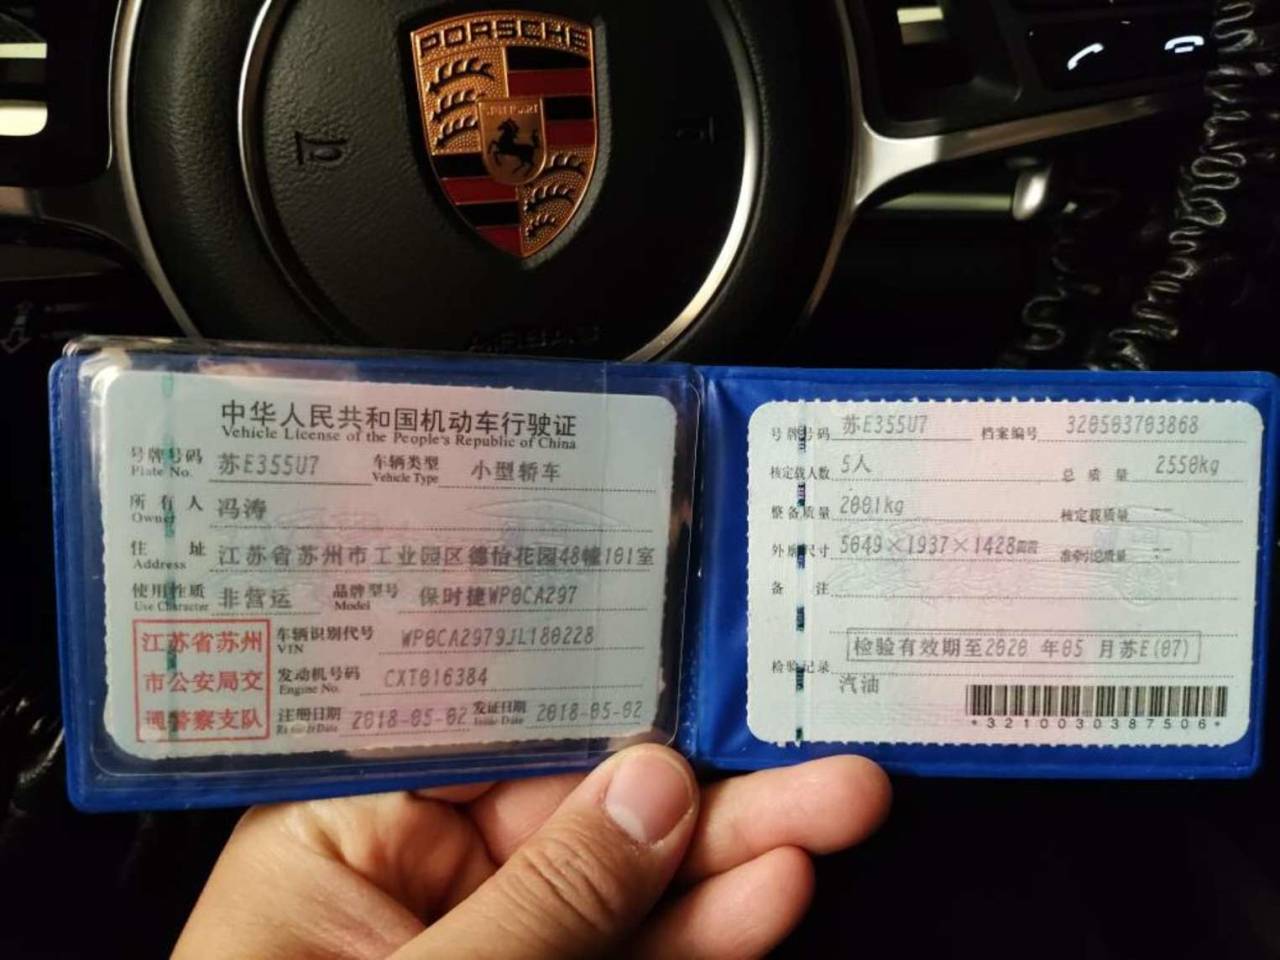 PORSCHE
中华人民共和国机动车行驶证
Vehicle License of the People's Republic of China
号牌号码 苏E355U7 车辆类型 小型轿车
Plate No. Vehicle Type
所有人 冯涛
Owner
住址 江苏省苏州市工业园区德怡花园48幢101室
Address
使用性质 非营运 品牌型号 保时捷WP0CA297
Use Character Model
江苏省苏州
市公安局交
通警察支队
车辆识别代号 WP0CA2979JL180228
VIN
发动机号码 CXT016384
Engine No.
注册日期 2018-05-02 发证日期 2018-05-02
Issue Date
号牌号码 苏E355U7 档案编号 320503703868
核定载人数 5人 总质量 2550kg
整备质量 2001kg 核定载质量 --
外廓尺寸 5049×1937×1428 准牵引总质量 --
备注
检验有效期至2020 年05 月苏E(07)
检验记录
汽油
*3210030387506*